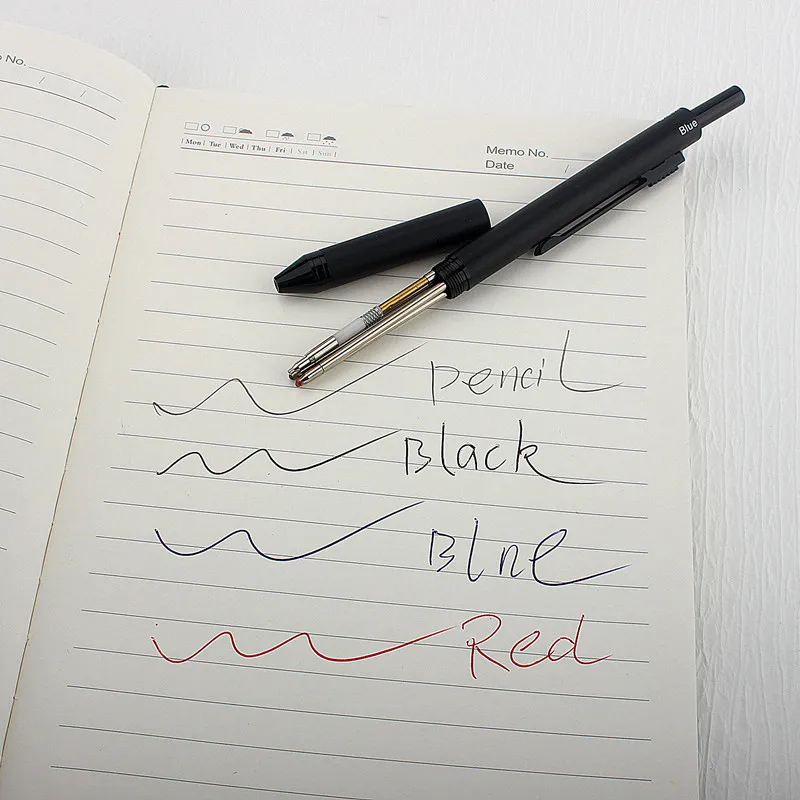 o No.
Mon Tue Wed Thu Fri Sat Sun
Memo No.
Date
Blue
Pencil
Black
Blne
Red